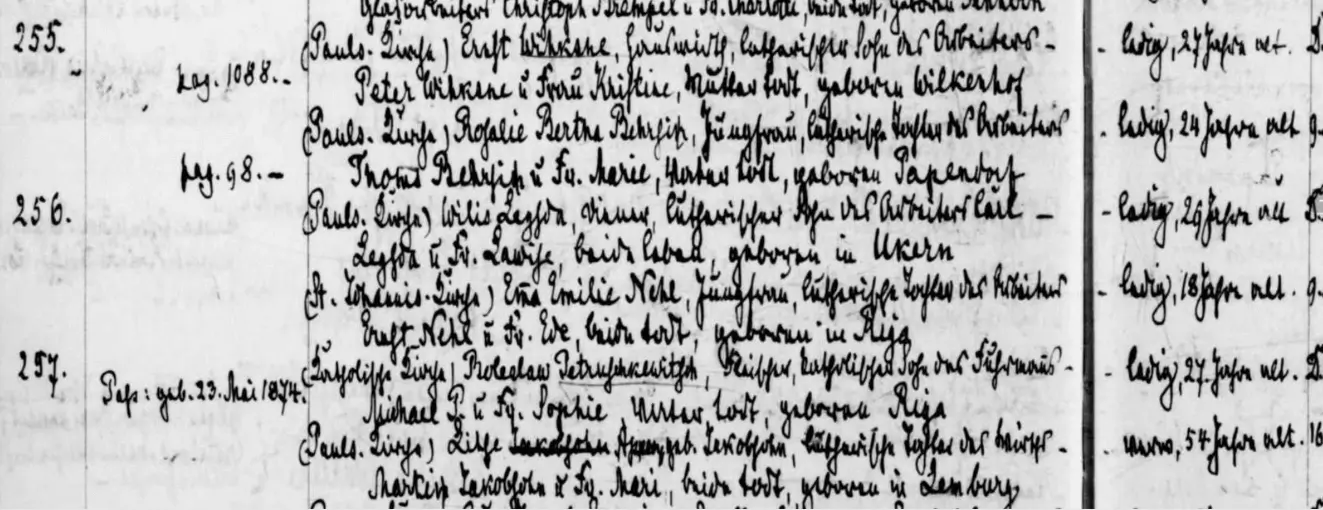 255. (Pauls-Kirche) Ernst Wihksne, Hauswirth, lutherischer Sohn des Arbeiters - - ledig, 27 Jahre alt.
pag. 1088. - Peter Wihksne u Frau Kristine, Mutter todt, geboren Wilkenhof
(Pauls-Kirche) Rosalie Bertha Behrsin, Jungfrau, lutherische Tochter des Arbeiters - ledig, 24 Jahre alt.
pag. 98. - Thoms Behrsin u Fr. Marie, Vater todt, geboren Papendorf
256. (Pauls-Kirche) Wilis Legsdin, Diener, lutherischer Sohn des Arbeiters Carl - - ledig, 26 Jahre alt
Legsdin u Fr. Lawise, beide leben, geboren in Ukern
(St. Johannis-Kirche) Emilie Nehl, Jungfrau, lutherische Tochter des Arbeiters - ledig, 18 Jahre alt.
Ernst Nehl u Fr. Ede, beide todt, geboren in Riga
257. (Katholische Kirche) Boleslaw Petruschkewitsch, Fleischer, katholischer Sohn des Fuhrmanns - - ledig, 27 Jahre alt.
Pass: geb. 23. Mai 1874. Michael P. u Fr. Sophie, Vater todt, geboren Riga
(Pauls-Kirche) Lihse geb. Jakobsohn, lutherische Tochter des - - verw, 54 Jahre alt. 16
Jakobsohn u Fr. Marie, beide todt, geboren in Lemburg